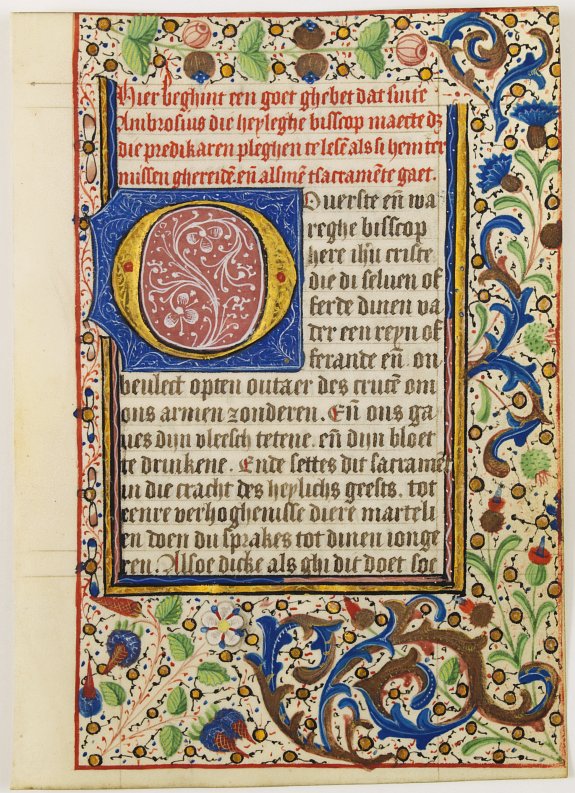 Hier beghint een goet ghebet dat sinte
Ambrosius die heyleghe bisscop maecte dʒ
die predikaren pleghen te lesē als si hem ter
missen ghereidē eñ alsmē tsacramēte gaet.
Ouerste eñ wa
reghe bisscop
here ihū criste
die di seluen of
ferde dinen va
der een reyn of
ferande eñ on
beulect opten outaer des crucē om
ons armen zonderen. Eñ ons ga
ues dijn vleesch tetene. eñ dijn bloet
te drinkene. Ende settes dit sacramēt
in die cracht des heylichs geests. tot
eenre verhoghenisse diere marteli
en doen du sprakes tot dinen ionge
ren. Alsoe dicke als ghi dit doet soe